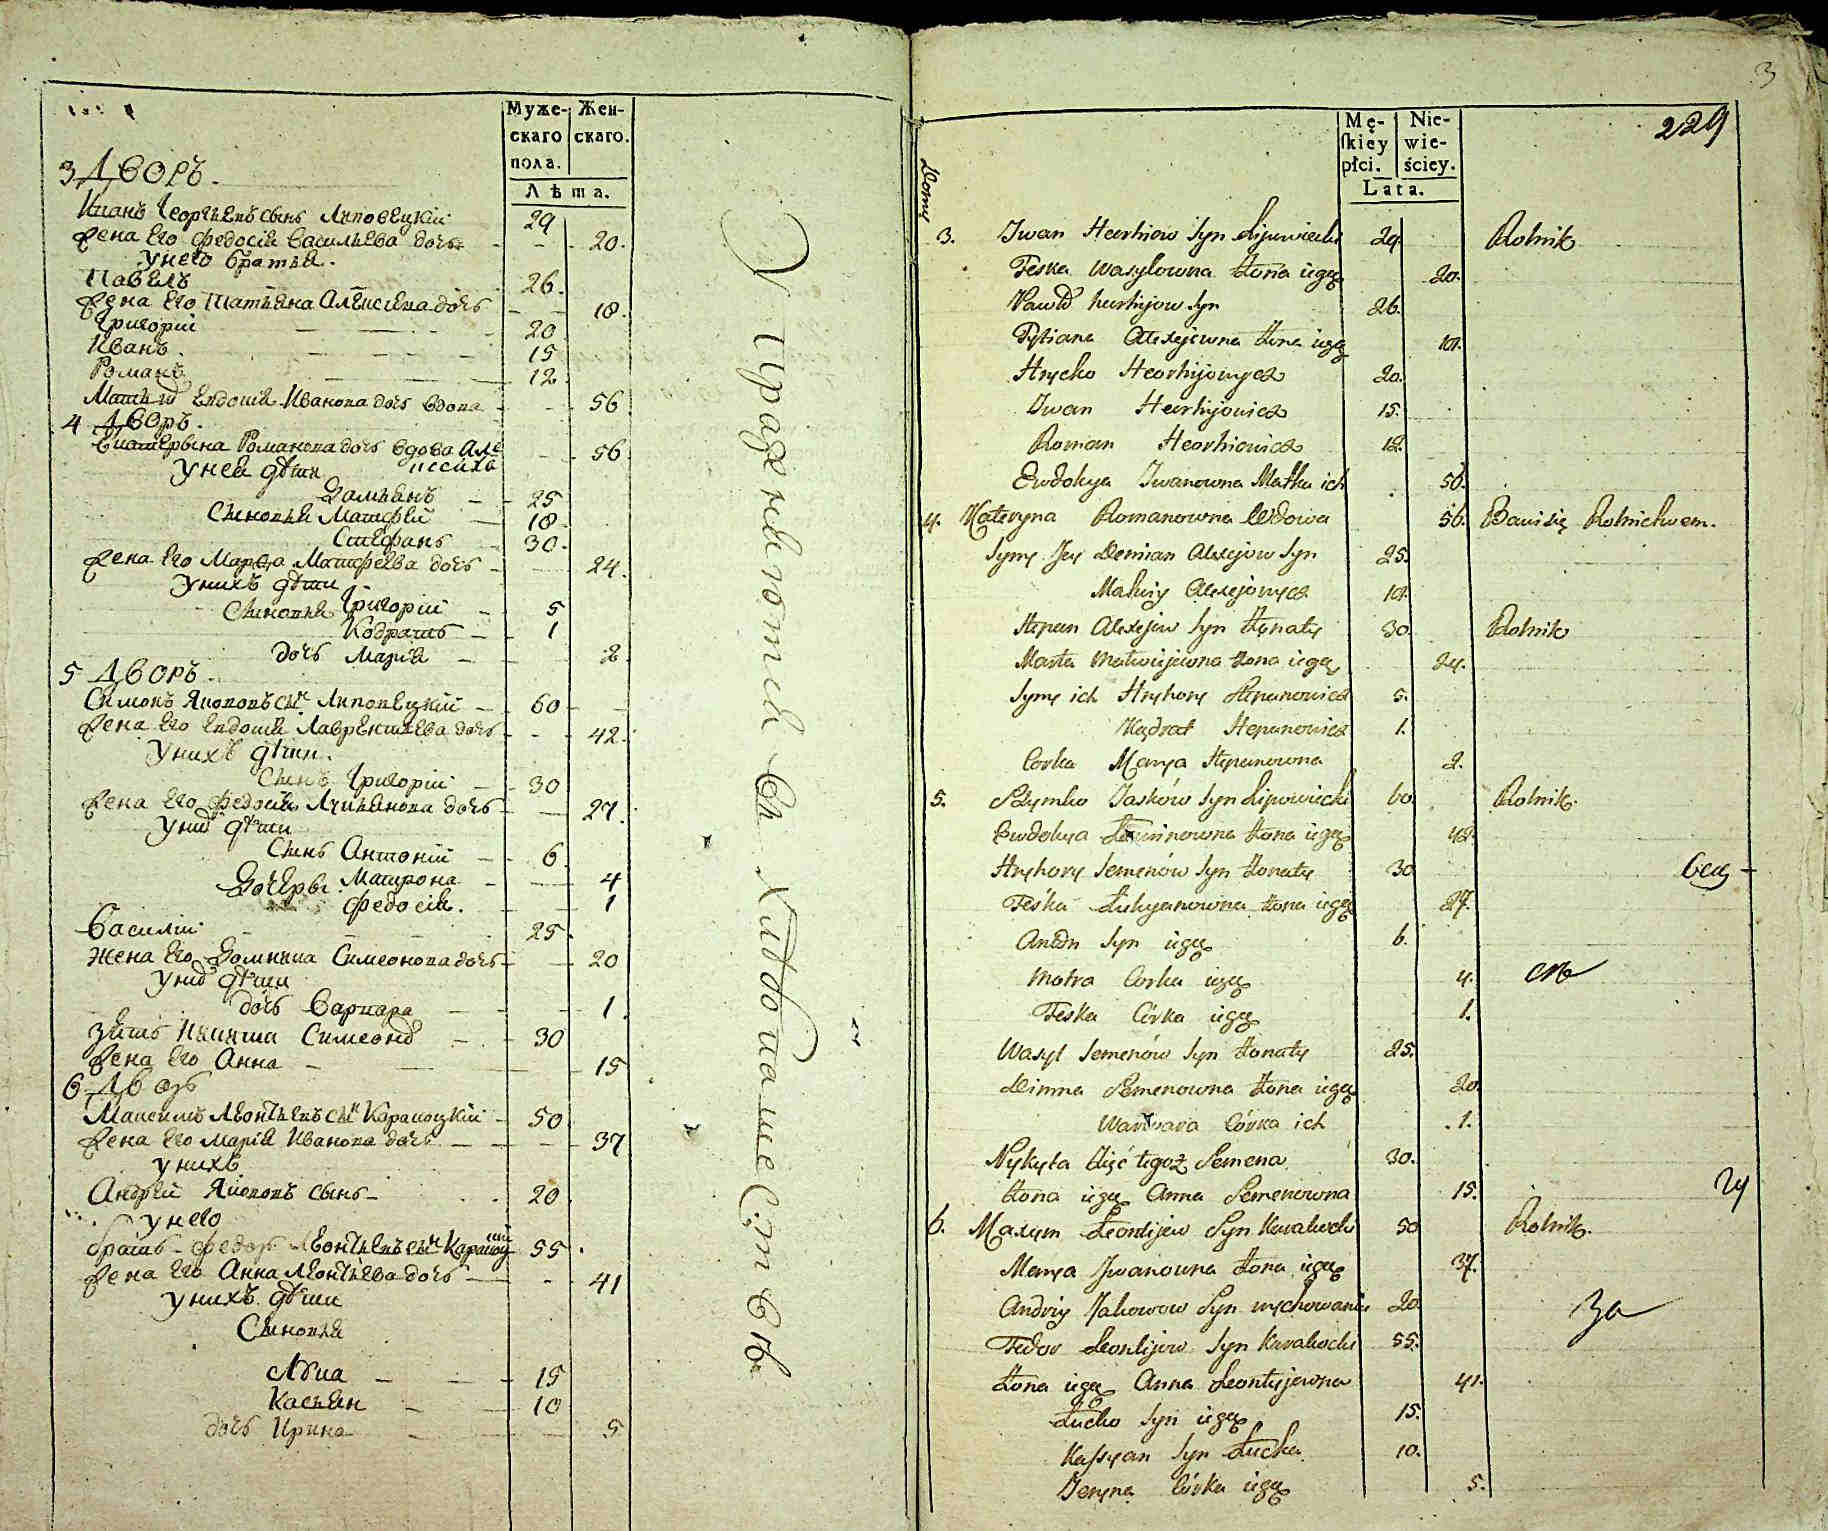 Муже-
скаго
пола.
Жен-
скаго.
Лѣта.
3 Дворъ.
Иванъ Георгиевъ сынъ Липовецкій 29
Жена его Федосія Васильева дочь 20.
У него братья.
Павелъ 26.
Жена его Татьяна Алексиева дочь 18.
Григорій 20
Иванъ 15
Романъ 12
Мать их Евдокія Иванова дочь вдова 56
4 Дворъ.
Екатерына Романова дочь вдова Але
ксиха 56
У ней дѣти
Дамьянъ 25
Сыновья Матфій 18
Стефанъ 30.
Жена его Марфа Матфеева дочь 24.
У нихъ дѣти
Сыновья Григорій 5
Кодратъ 1
дочь Марія 2
5 Дворъ
Симонъ Яковов сынъ Липовецкій 60
Жена его Евдокія Лаврентиева дочь 42.
У нихъ дѣти.
Сынъ Григорій 30
Жена его Федосія Лукьянова дочь 27.
У них дѣти
Сынъ Антоній 6.
Дочеры Матрона 4
Федосія. 1
Василій 25.
Жена его Домникia Симеонова дочь 20
У них дѣти
дочь Варвара 1.
Зять Никита Симеонов 30
Жена его Анна 15
6 Дворъ
Максимъ Леонтьевъ сын Каравоцкій 50
Жена его Марія Иванова дочь 37
у нихъ
Андрей Яковов сынъ 20
у него
братъ Федор Леонтьевъ сын Каравоцкій 55.
Жена его Анна Леонтьева дочь 41
У нихъ дѣти
Сыновья
Лука 15
Касьян 10
дочь Ирина 5
Упражняются въ хлѣбопашествѣ
3
229
Domy
Mę-
skiey
płci.
Nie-
wie-
ściey.
Lata.
3. Iwan Heorhiow Syn Lipowiecki 29. Rolnik
Feska Wasylowna żona iego 20.
Pawło heorhijow Syn 26.
Tytiana Alexejewna żona iego 18.
Hrycko Heorhijowycz 20.
Iwan Heorhijowicz 15.
Roman Heorhiowicz 12.
Ewdokya Iwanowna Matka ich 56.
4. Kateryna Romanowna Wdowa 56. Bawi się Rolnictwem.
Syny Jey Demian Alexejow Syn 25.
Matwiy Alexejowycz 18.
Stepan Alexejew Syn żonaty 30. Rolnik
Marta Matwijewna żona iego 24.
Syny ich Hryhory Stepanowicz 5.
Kądrat Stepanowicz 1.
Corka Marya Stepanowna 2.
5. Szymko Jasków Syn Lipowiecki 60. Rolnik.
Ewdokya żona iego 42.
Hryhory Semenów Syn żonaty 30
Feska Łukyanowna żona iego 27.
Anton Syn iego 6.
Motra Corka iego 4.
Feska Córka iego 1.
Wasyl Semenów Syn żonaty 25.
Dimna Semenowna żona iego 20
Warwara Córka ich 1.
Nykyta Zięć tegoż Semena 30.
żona iego Anna Semenowna 15.
6. Maxym Leontijew Syn Karabocki 50 Rolnik.
Marya Iwanowna żona iego 37.
Andriy Jakowow Syn wychowaniec 20
Fedor Leontijow Syn Karabocki 55.
żona iego Anna Leontyjewna 41.
Łucko Syn iego 15.
Kassyan Syn Łucka 10.
Jeryna Córka iego 5.